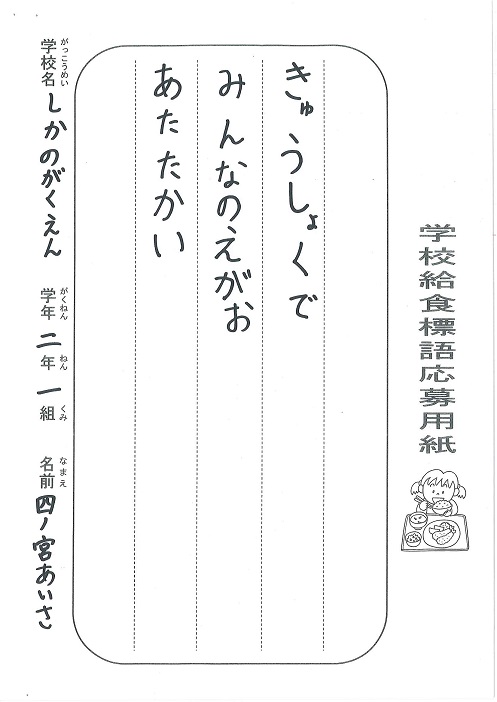 学校給食標語応募用紙
きゅうしょくで
みんなのえがお
あたたかい
学校名 がっこうめい しかのがくえん 学年 がくねん 二年 ねん 一組 くみ 名前 なまえ 四ノ宮あいさ